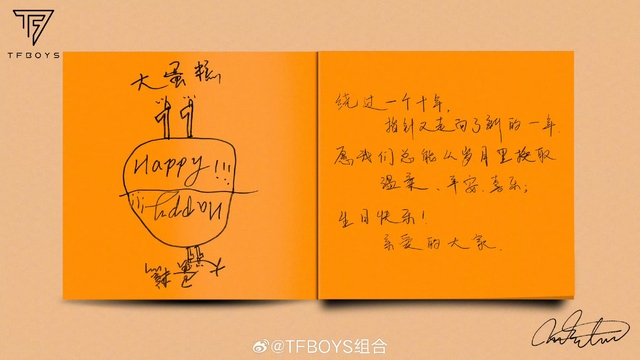 TFBOYS
大蛋糕
Happy!!!
Happy!!!
大蛋糕
绕过一个十年,
指针又走向了新的一年.
愿我们总能从岁月里换取
温柔、平安、喜乐;
生日快乐!
亲爱的大家.
@TFBOYS组合